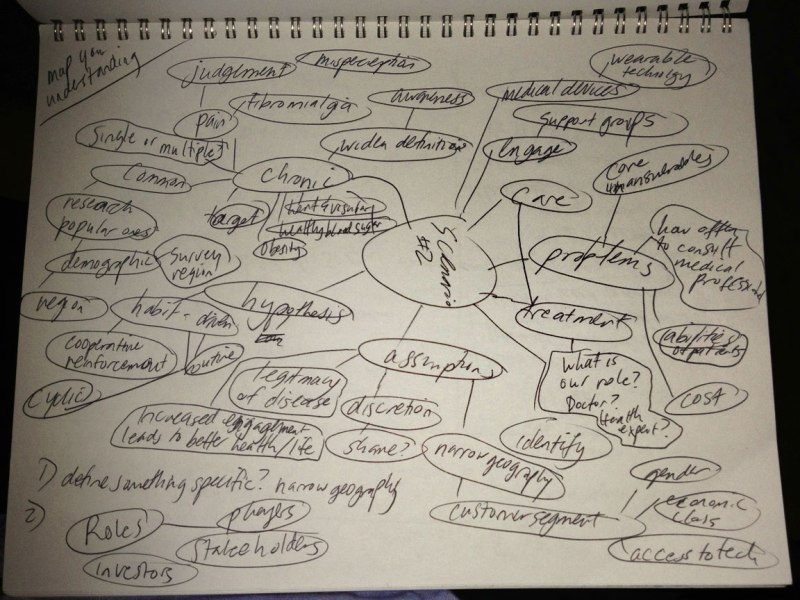 map your
understanding
judgement
misperception
wearable
technology
fibromialgia
awareness
medical devices
pain
support groups
single or multiple?
widen definition
engage
common
chronic
care
core
research
popular ones
target
healthy blood sugar
obesity
Scenario
#2
problems
how often
to consult
medical
professional
demographic
survey
region
region
habit-driven
hypothesis
treatment
abilities
of patients
cooperative
reinforcement
routine
assumptions
What is
our role?
Doctor?
Health
expert?
cost
cyclic
legitimacy
of disease
discretion
increased engagement
leads to better health/life
share?
identify
narrow geography
gender
1) define something specific? narrow geography
customer segment
economic
class
2)
Roles
players
stakeholders
access to tech
investors